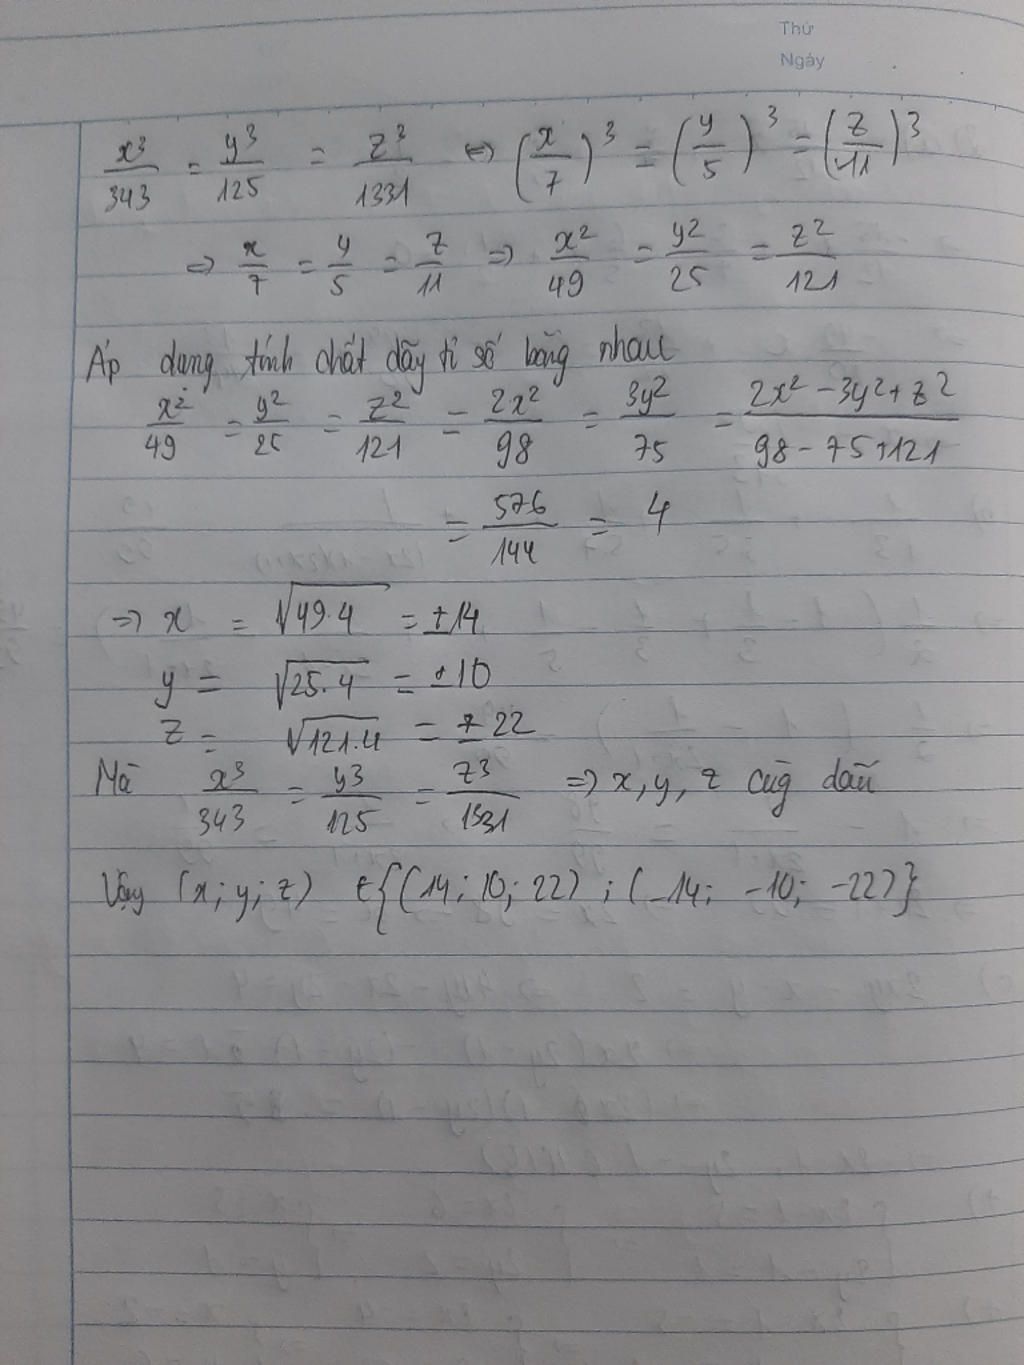 Thứ
Ngày
x³/343 = y³/125 = z³/1331 ⇔ (x/7)³ = (y/5)³ = (z/11)³
⇒ x/7 = y/5 = z/11 ⇒ x²/49 = y²/25 = z²/121
Áp dụng tính chất dãy tỉ số bằng nhau
x²/49 = y²/25 = z²/121 = 2x²/98 = 3y²/75 = (2x² - 3y² + z²)/(98 - 75 + 121)
= 576/144 = 4
⇒ x = √49.4 = ±14
y = √25.4 = ±10
z = √121.4 = ±22
Mà x³/343 = y³/125 = z³/1331 ⇒ x, y, z cùg dấu
Vậy (x; y; z) ∈ {(14; 10; 22) ; (-14; -10; -22)}